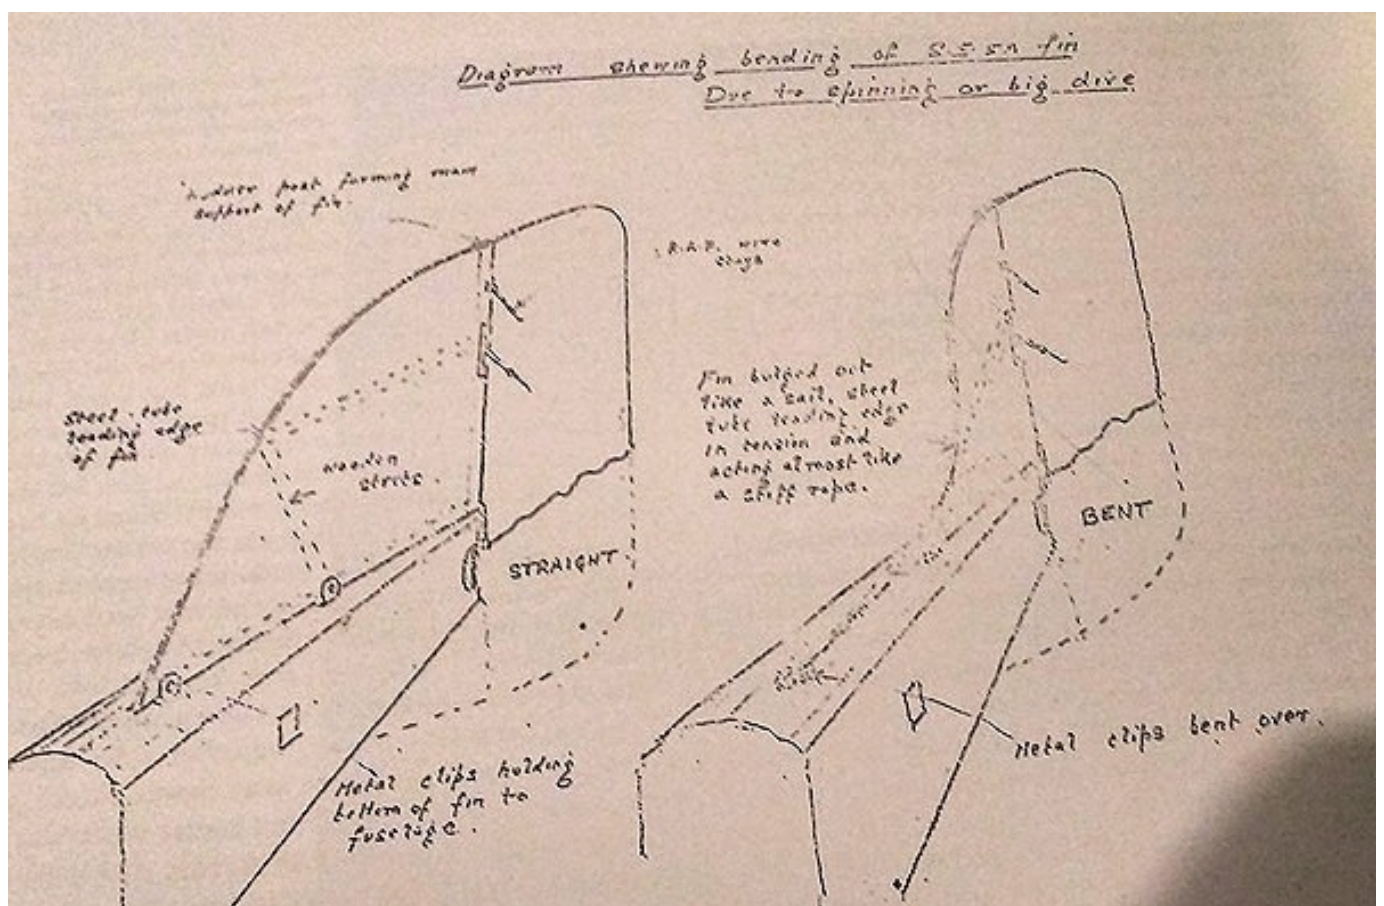 Diagram shewing bending of S.E.5A fin
Due to spinning or big dive
Rudder post forming main
support of fin.
R.A.F. wire
stays
Steel tube
leading edge
of fin
wooden
struts.
Fin bulged out
like a sail, steel
tube leading edge
in tension and
acting almost like
a stiff rope.
STRAIGHT
BENT
Metal clips holding
bottom of fin to
fuselage.
Metal clips bent over.